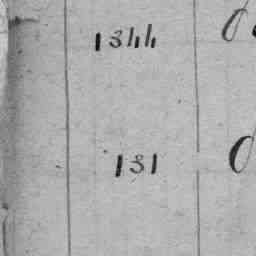 1344
131